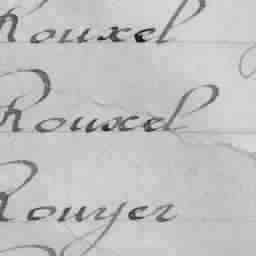 Rouxel
Rouxel
Rouyer